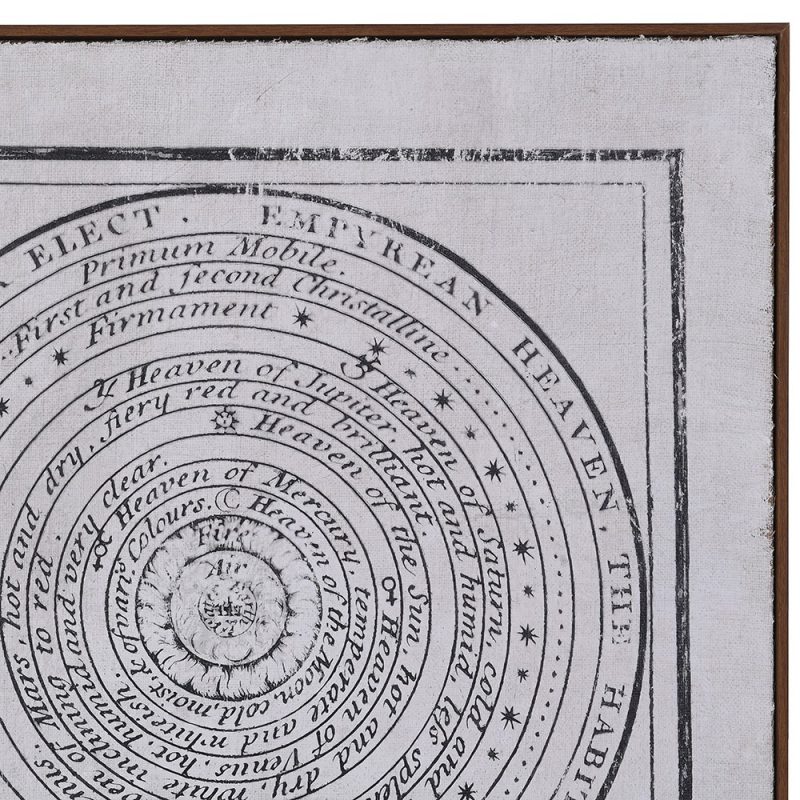 ELECT . EMPYREAN HEAVEN, THE HABIT
Primum Mobile.
First and second Christalline
Firmament
♄ Heaven of Saturn, cold and
♃ Heaven of Jupiter, hot and humid, less splen
en of Mars, hot and dry, fiery red and brilliant.
Heaven of the Sun, hot and dry, white inclining to red.
♀ Heaven of Venus, hot, humid and very clear.
☿ Heaven of Mercury, temperate and whiteish.
☾ Heaven of the Moon cold, moist & of varis Colours.
Fire
Air